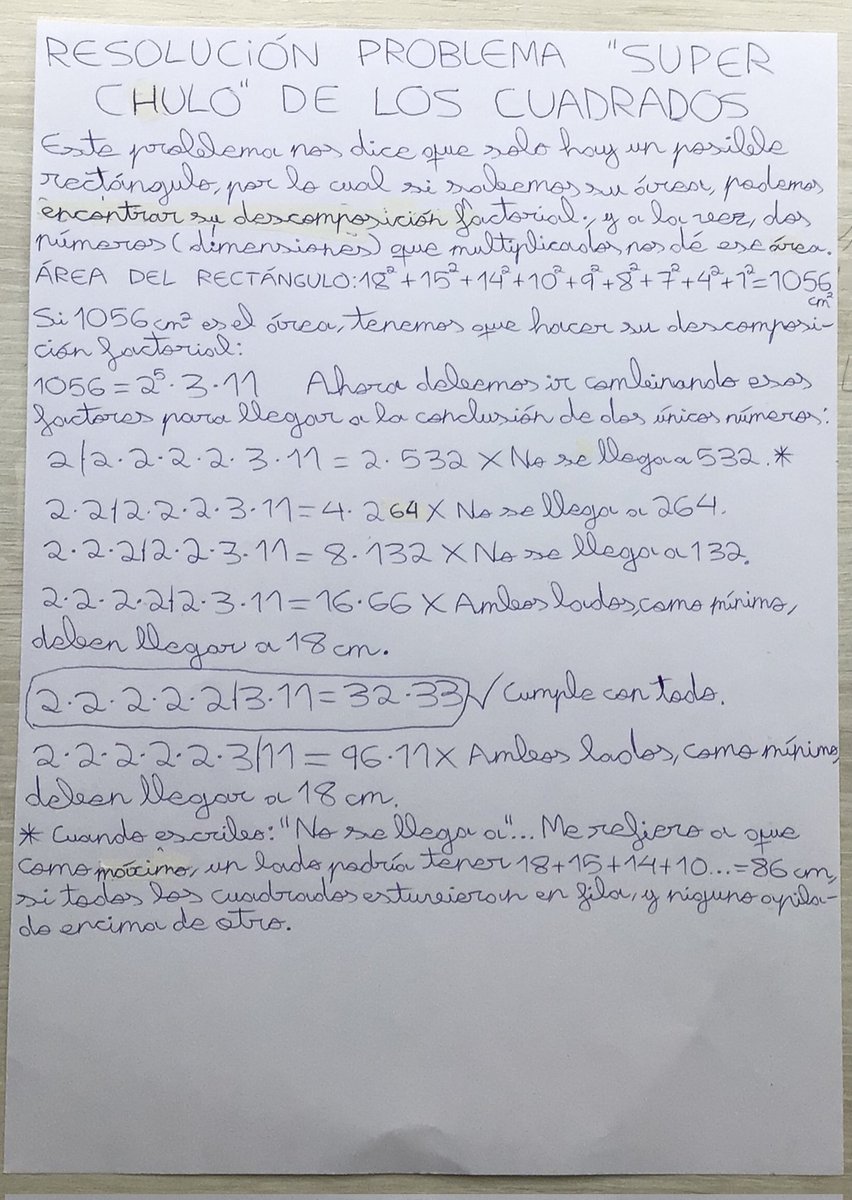 RESOLUCIÓN PROBLEMA "SUPER
CHULO" DE LOS CUADRADOS
Este problema nos dice que solo hay un posible
rectángulo, por lo cual si sabemos su área, podemos
encontrar su descomposición factorial, y a la vez, dos
números (dimensiones) que multiplicados nos dé ese área.
ÁREA DEL RECTÁNGULO: 18²+15²+14²+10²+9²+8²+7²+4²+1²=1056 cm²
Si 1056 cm² es el área, tenemos que hacer su descomposi-
ción factorial:
1056 = 2⁵·3·11 Ahora debemos ir combinando esos
factores para llegar a la conclusión de dos únicos números:
2|2·2·2·2·3·11 = 2·532 X No se llega a 532.*
2·2|2·2·2·3·11 = 4·264 X No se llega a 264.
2·2·2|2·2·3·11 = 8·132 X No se llega a 132.
2·2·2·2|2·3·11 = 16·66 X Ambos lados, como mínimo,
deben llegar a 18 cm.
2·2·2·2·2|3·11 = 32·33 √ Cumple con todo.
2·2·2·2·2·3|11 = 96·11 X Ambos lados, como mínimo,
deben llegar a 18 cm.
* Cuando escribo: "No se llega a"... Me refiero a que
como máximo, un lado podría tener 18+15+14+10...=86 cm,
si todos los cuadrados estuvieran en fila, y niguno apila-
do encima de otro.